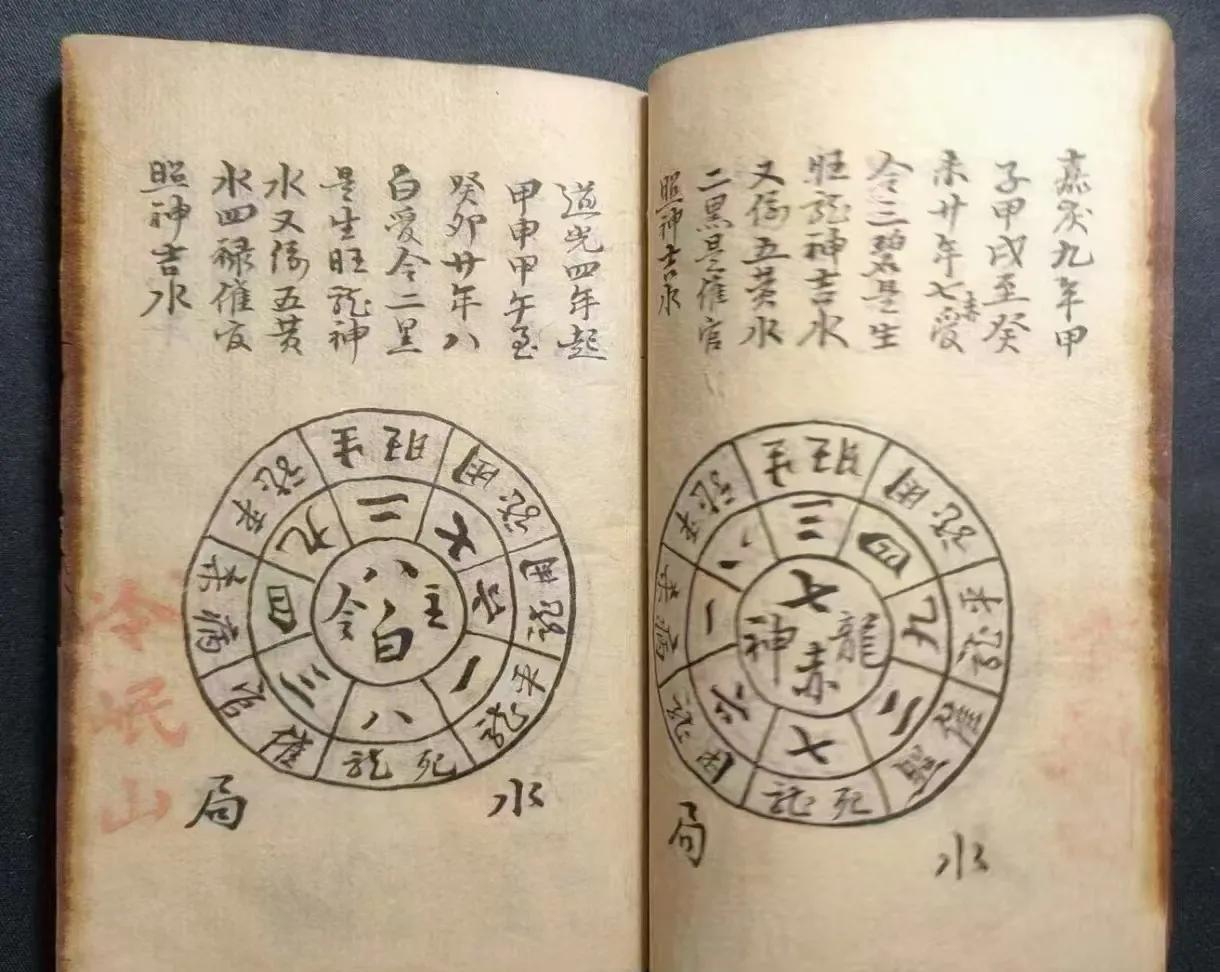 嘉庆九年甲
子甲戌至癸
未廿年七赤受
令三碧是生
旺龍神吉水
又係五黄水
二黑是催官
照神吉水
生旺
囚龍
平龍
催照
死龍
平龍
三
四
九
二
七
六
一
八
七赤
龍神
水局
道光四年起
甲申甲午至
癸卯廿年八
白受令二黑
是生旺龍神
水又係五黄
水四禄催官
照神吉水
生旺
囚龍
平龍
死龍
平龍
二
七
六
一
八
三
四
九
八白
主令
水局
冷岷山